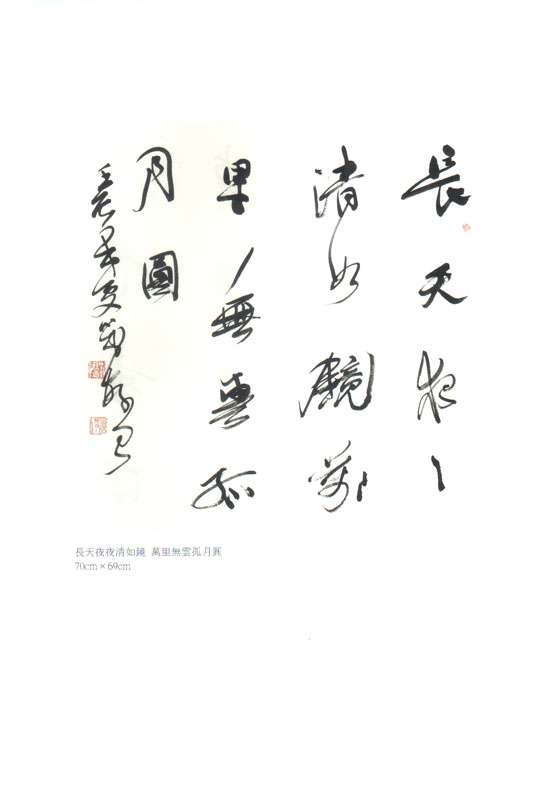 長天夜〻
清如鏡萬
里無雲孤
月圓
長天夜夜清如鏡 萬里無雲孤月圓
70cm×69cm